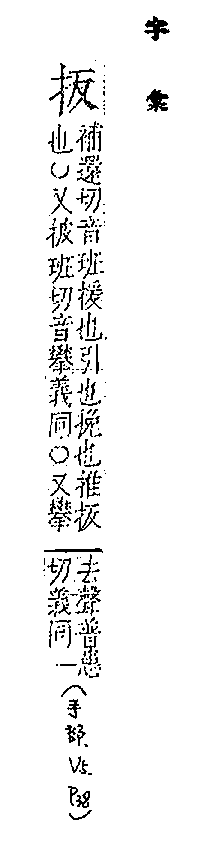 字彙
扳
補還切音班援也引也挽也推扳
也○又披班切音攀義同○又攀
去聲普患
切義同一
(手部、V5.P38)